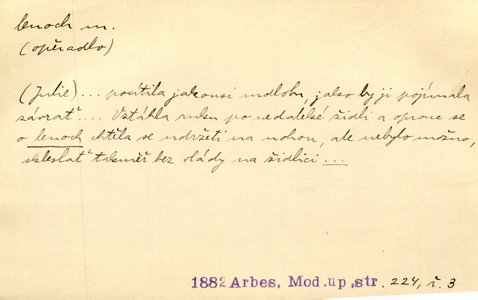 lenoch m.
(opěradlo)
(Julie)... pocítila jakousi mdlobu, jakoby ji pojímala
závrať.... Vztáhla ruku po nedaleké židli a oprouc se
o lenoch chtěla se udržeti na nohou, ale nebylo možno,
sklesla téměř bez vlády na židlici...
1882 Arbes, Mod. up, str. 224, ř. 3